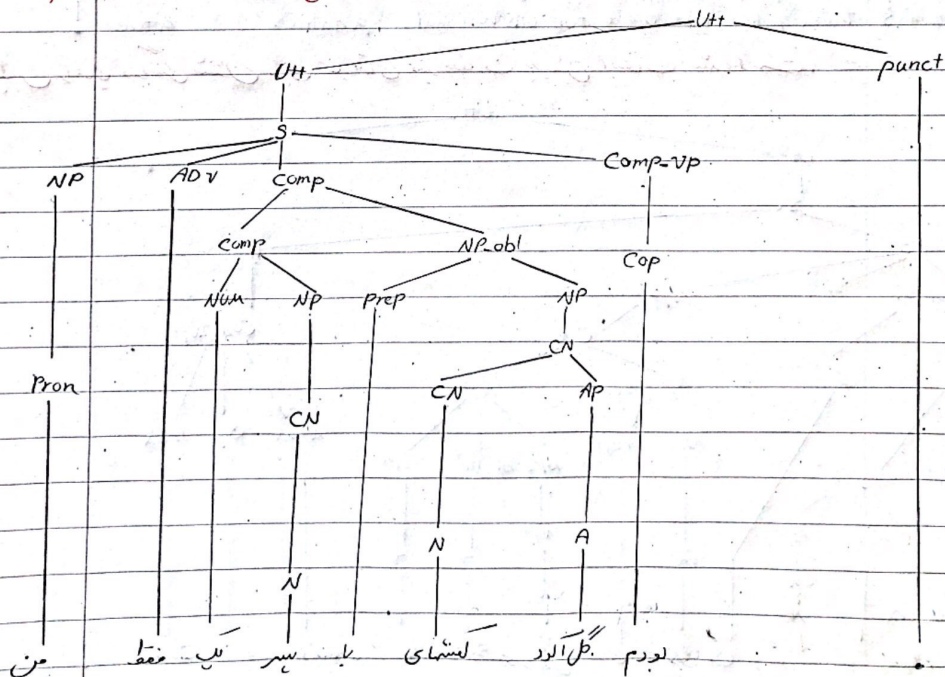 Utt
Utt punct
S
NP ADV Comp Comp-VP
Comp NP-obl Cop
Num NP prep NP
CN
Pron CN AP
CN
N A
N
من فقط یک پسر با کفشهای گل‌آلود بودم .